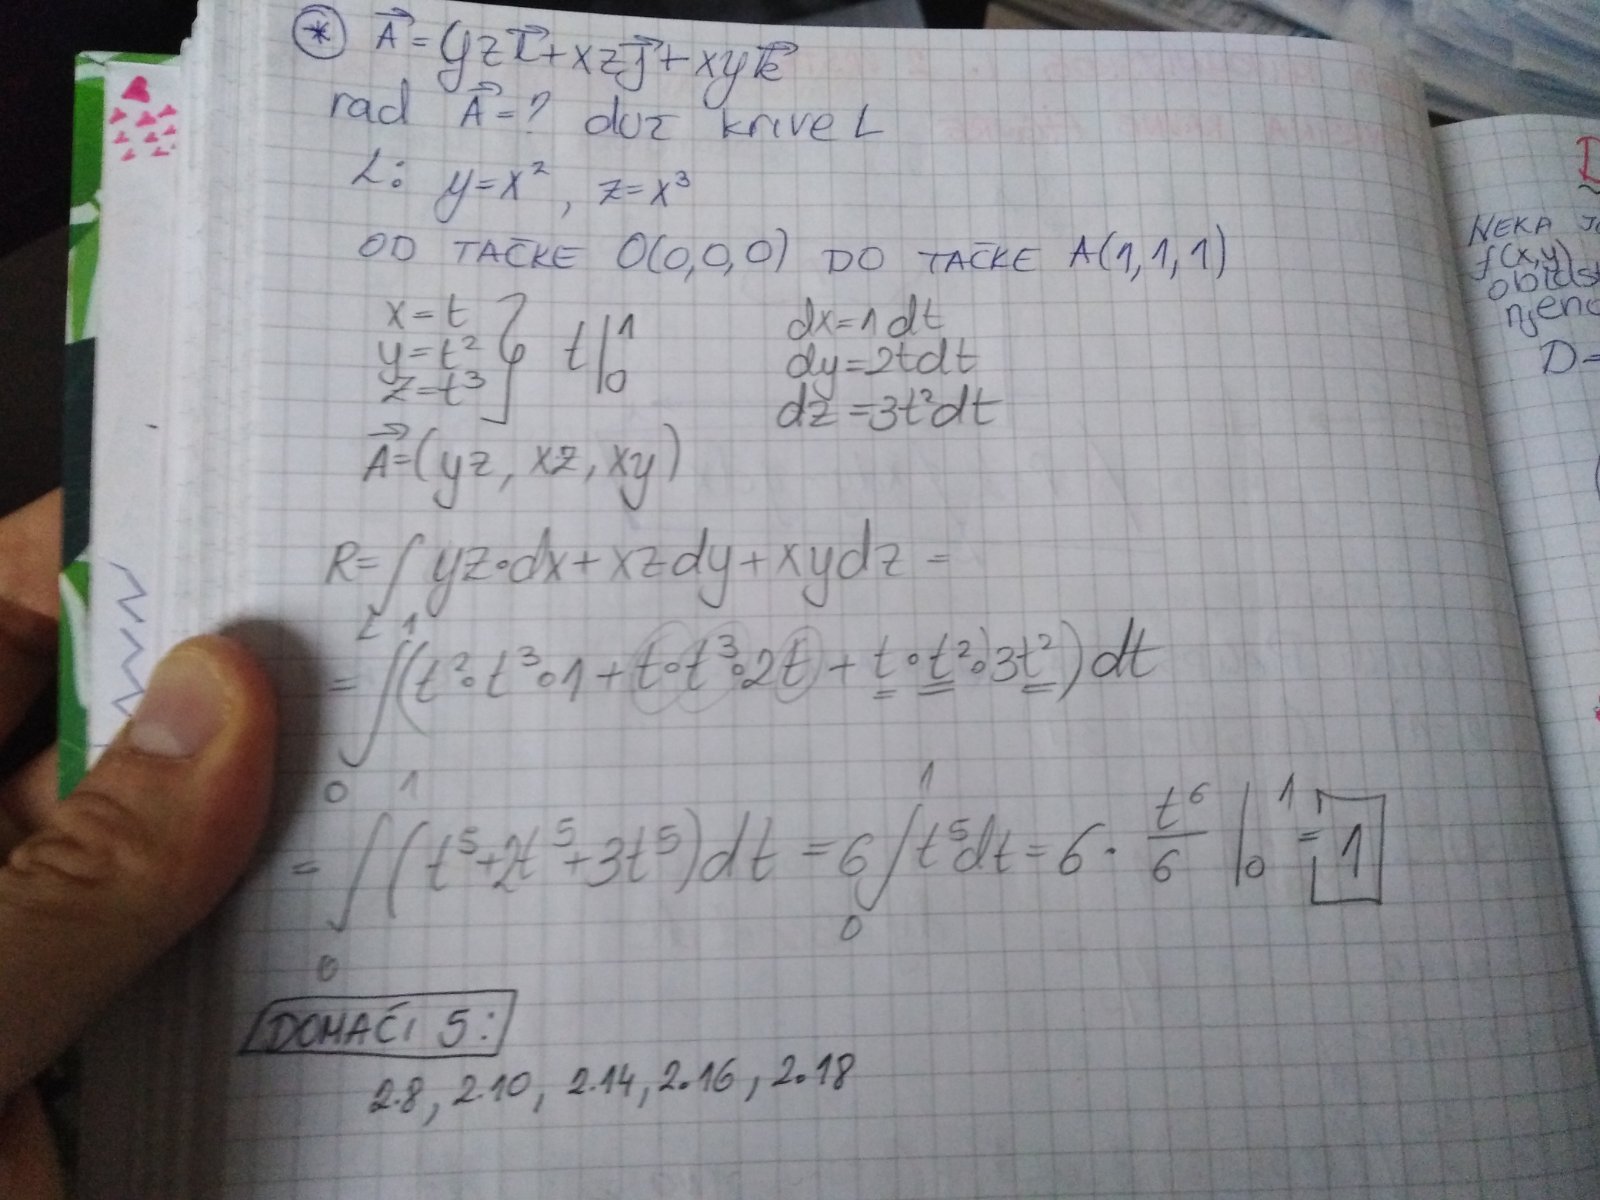 * A⃗ = yz i⃗ + xz j⃗ + xy k⃗
rad A⃗ = ? duz krive L
L: y=x², z=x³
OD TAČKE O(0,0,0) DO TAČKE A(1,1,1)
x=t
y=t²
z=t³
t |₀¹
dx=1dt
dy=2tdt
dz=3t²dt
A⃗=(yz, xz, xy)
R=∫_L yz·dx+xzdy+xydz=
=∫₀¹(t²·t³·1+t·t³·2t+t·t²·3t²)dt
=∫₀¹(t⁵+2t⁵+3t⁵)dt=6∫₀¹t⁵dt=6·t⁶/6|₀¹=1
DOMAĆI 5:
2.8, 2.10, 2.14, 2.16, 2.18
NEKA
f(x,y)
D=